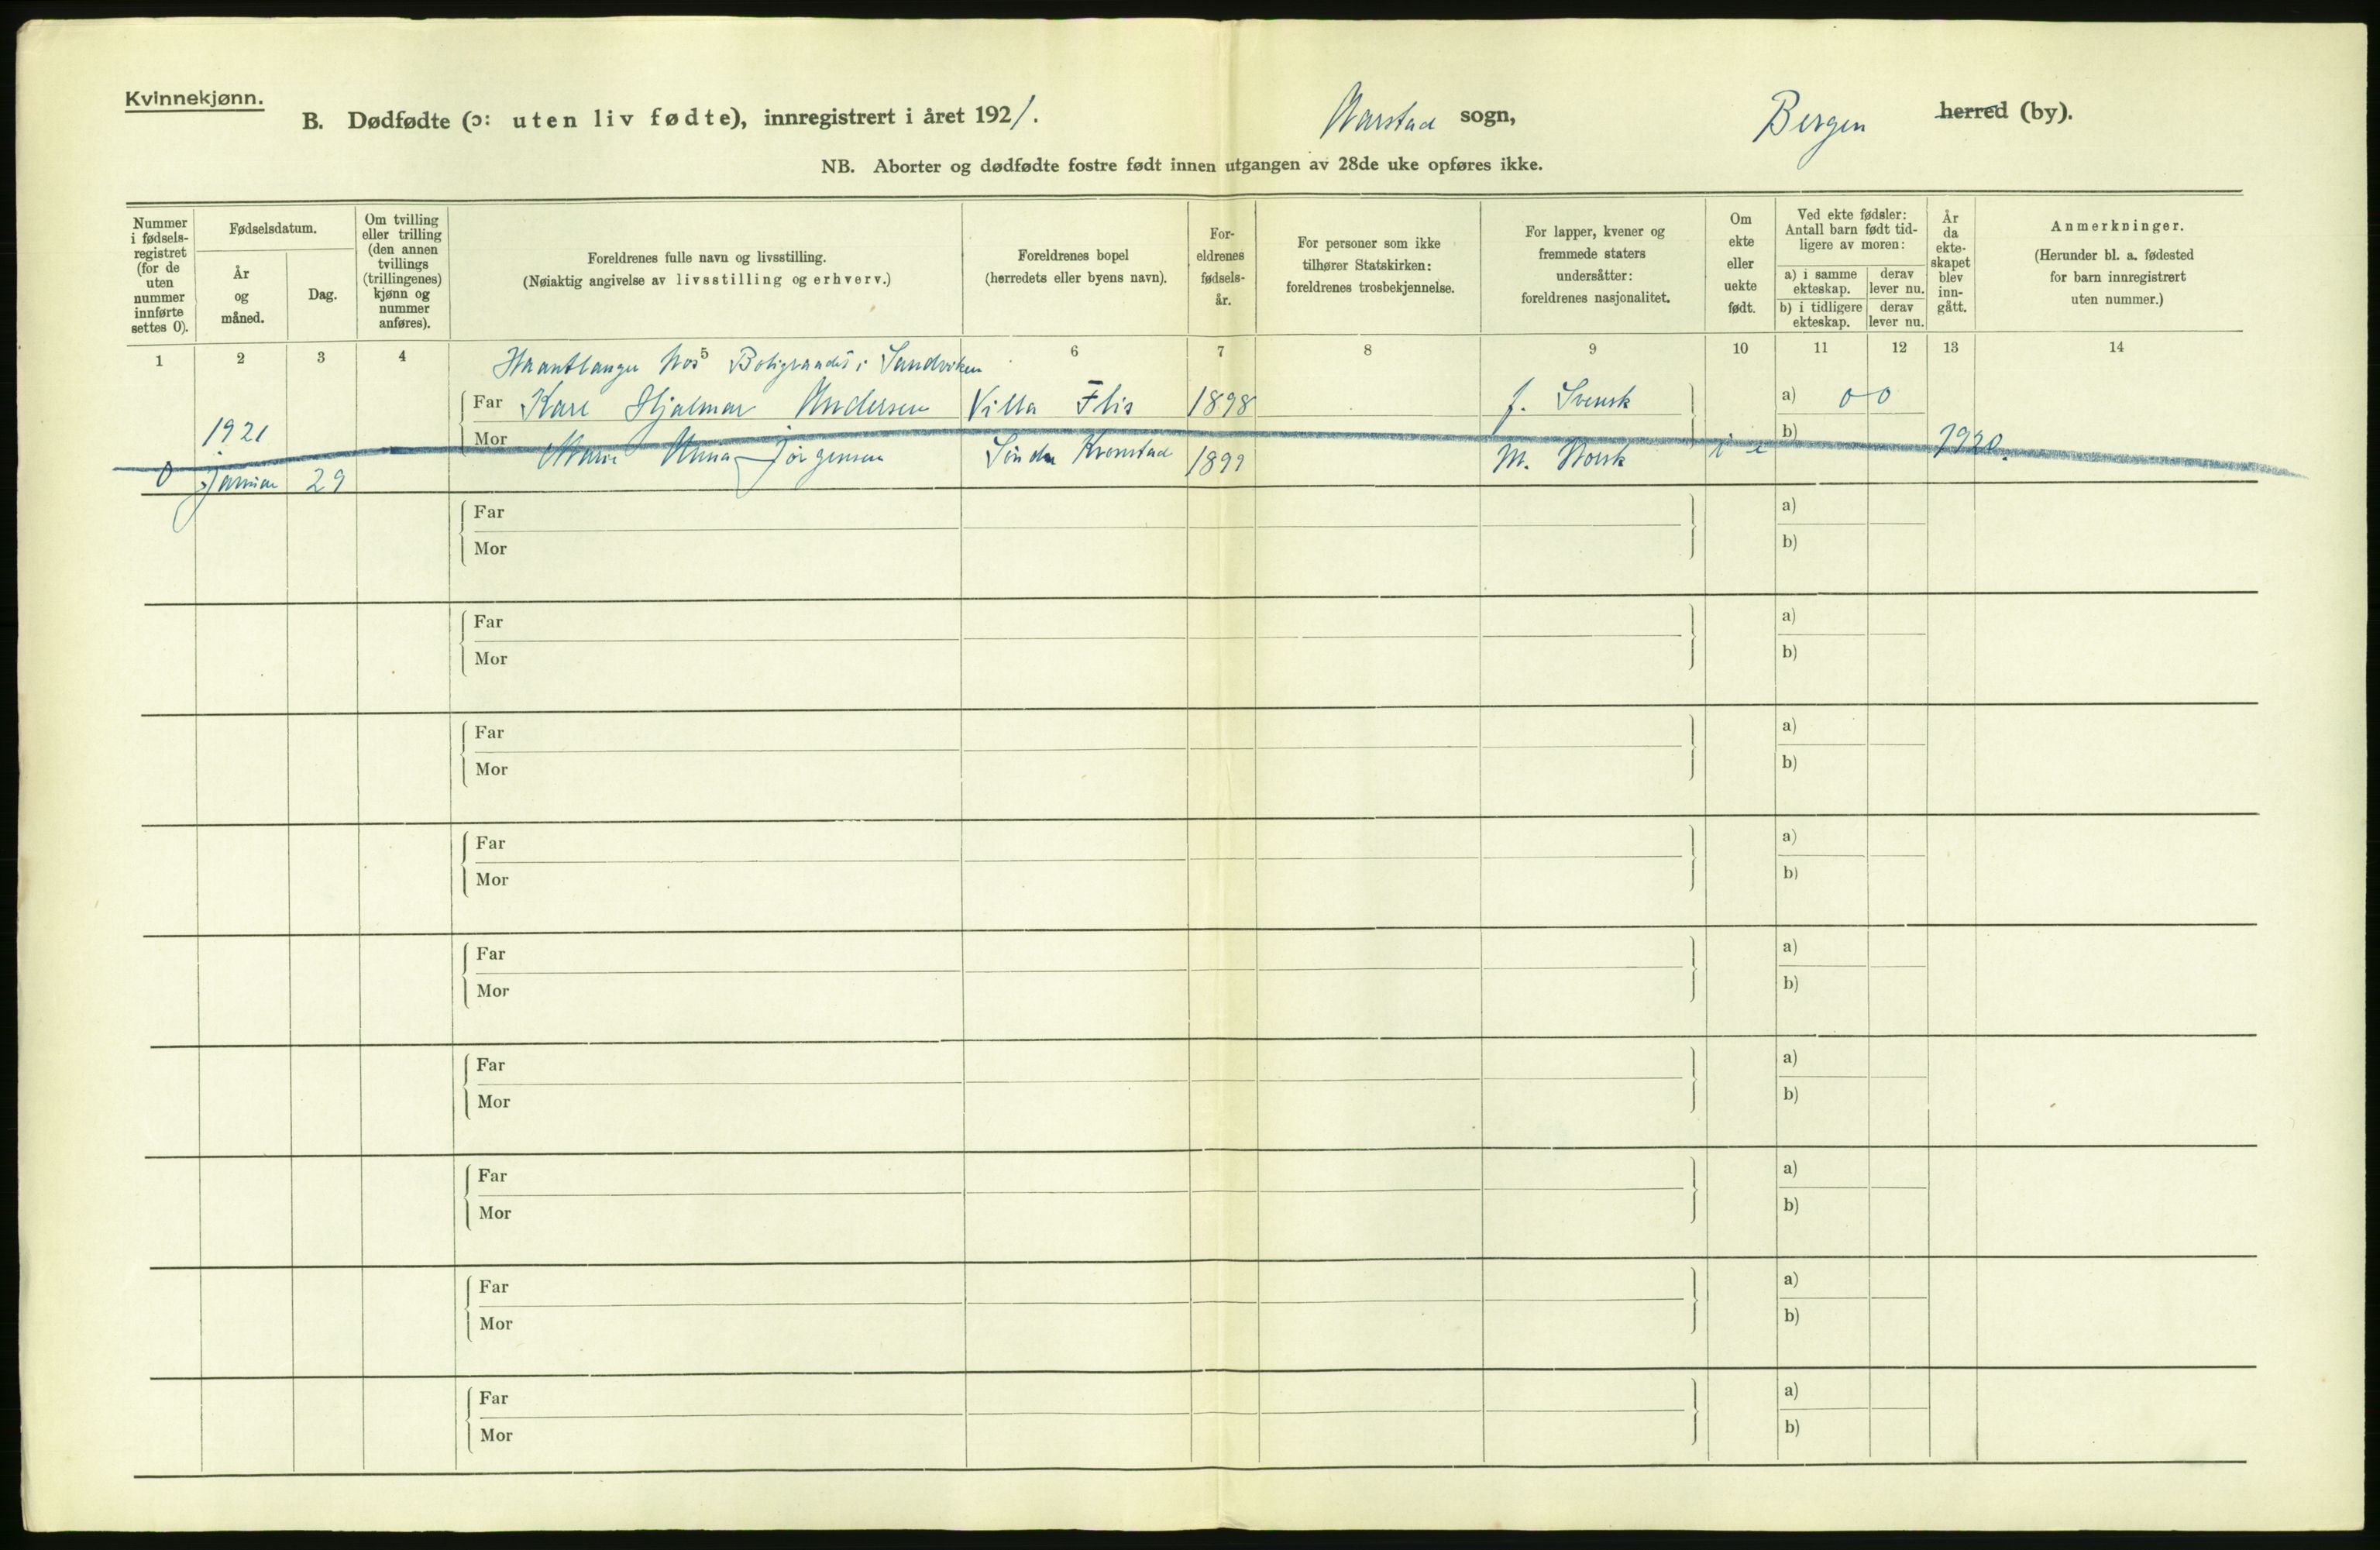 Kvinnekjønn.
B. Dødfødte (ɔ: uten liv fødte), innregistrert i året 1921. Aarstad sogn, Bergen herred (by).
NB. Aborter og dødfødte fostre født innen utgangen av 28de uke opføres ikke.
Nummer i fødsels-registret (for de uten nummer innførte settes 0).
Fødselsdatum.
År og måned.
Dag.
Om tvilling eller trilling (den annen tvillings (trillingenes) kjønn og nummer anføres).
Foreldrenes fulle navn og livsstilling.
(Nøiaktig angivelse av livsstilling og erhverv.)
Foreldrenes bopel
(herredets eller byens navn).
For-eldrenes fødsels-år.
For personer som ikke tilhører Statskirken: foreldrenes trosbekjennelse.
For lapper, kvener og fremmede staters undersåtter: foreldrenes nasjonalitet.
Om ekte eller uekte født.
Ved ekte fødsler: Antall barn født tid-ligere av moren:
a) i samme ekteskap. derav lever nu.
b) i tidligere ekteskap. derav lever nu.
År da ekte-skapet blev inn-gått.
Anmerkninger.
(Herunder bl. a. fødested for barn innregistrert uten nummer.)
1 2 3 4 5 6 7 8 9 10 11 12 13 14
Haantlanger hos i Sandviken
Far Karl Hjalmar Andersen Villa Flis 1898 f. Svensk a) 0 0
1921
Mor Marie Anna Jörgensen Söndre Kronstad 1899 M. Norsk b) 1920.
0 Januar 29
Far a)
Mor b)
Far a)
Mor b)
Far a)
Mor b)
Far a)
Mor b)
Far a)
Mor b)
Far a)
Mor b)
Far a)
Mor b)
Far a)
Mor b)
Far a)
Mor b)